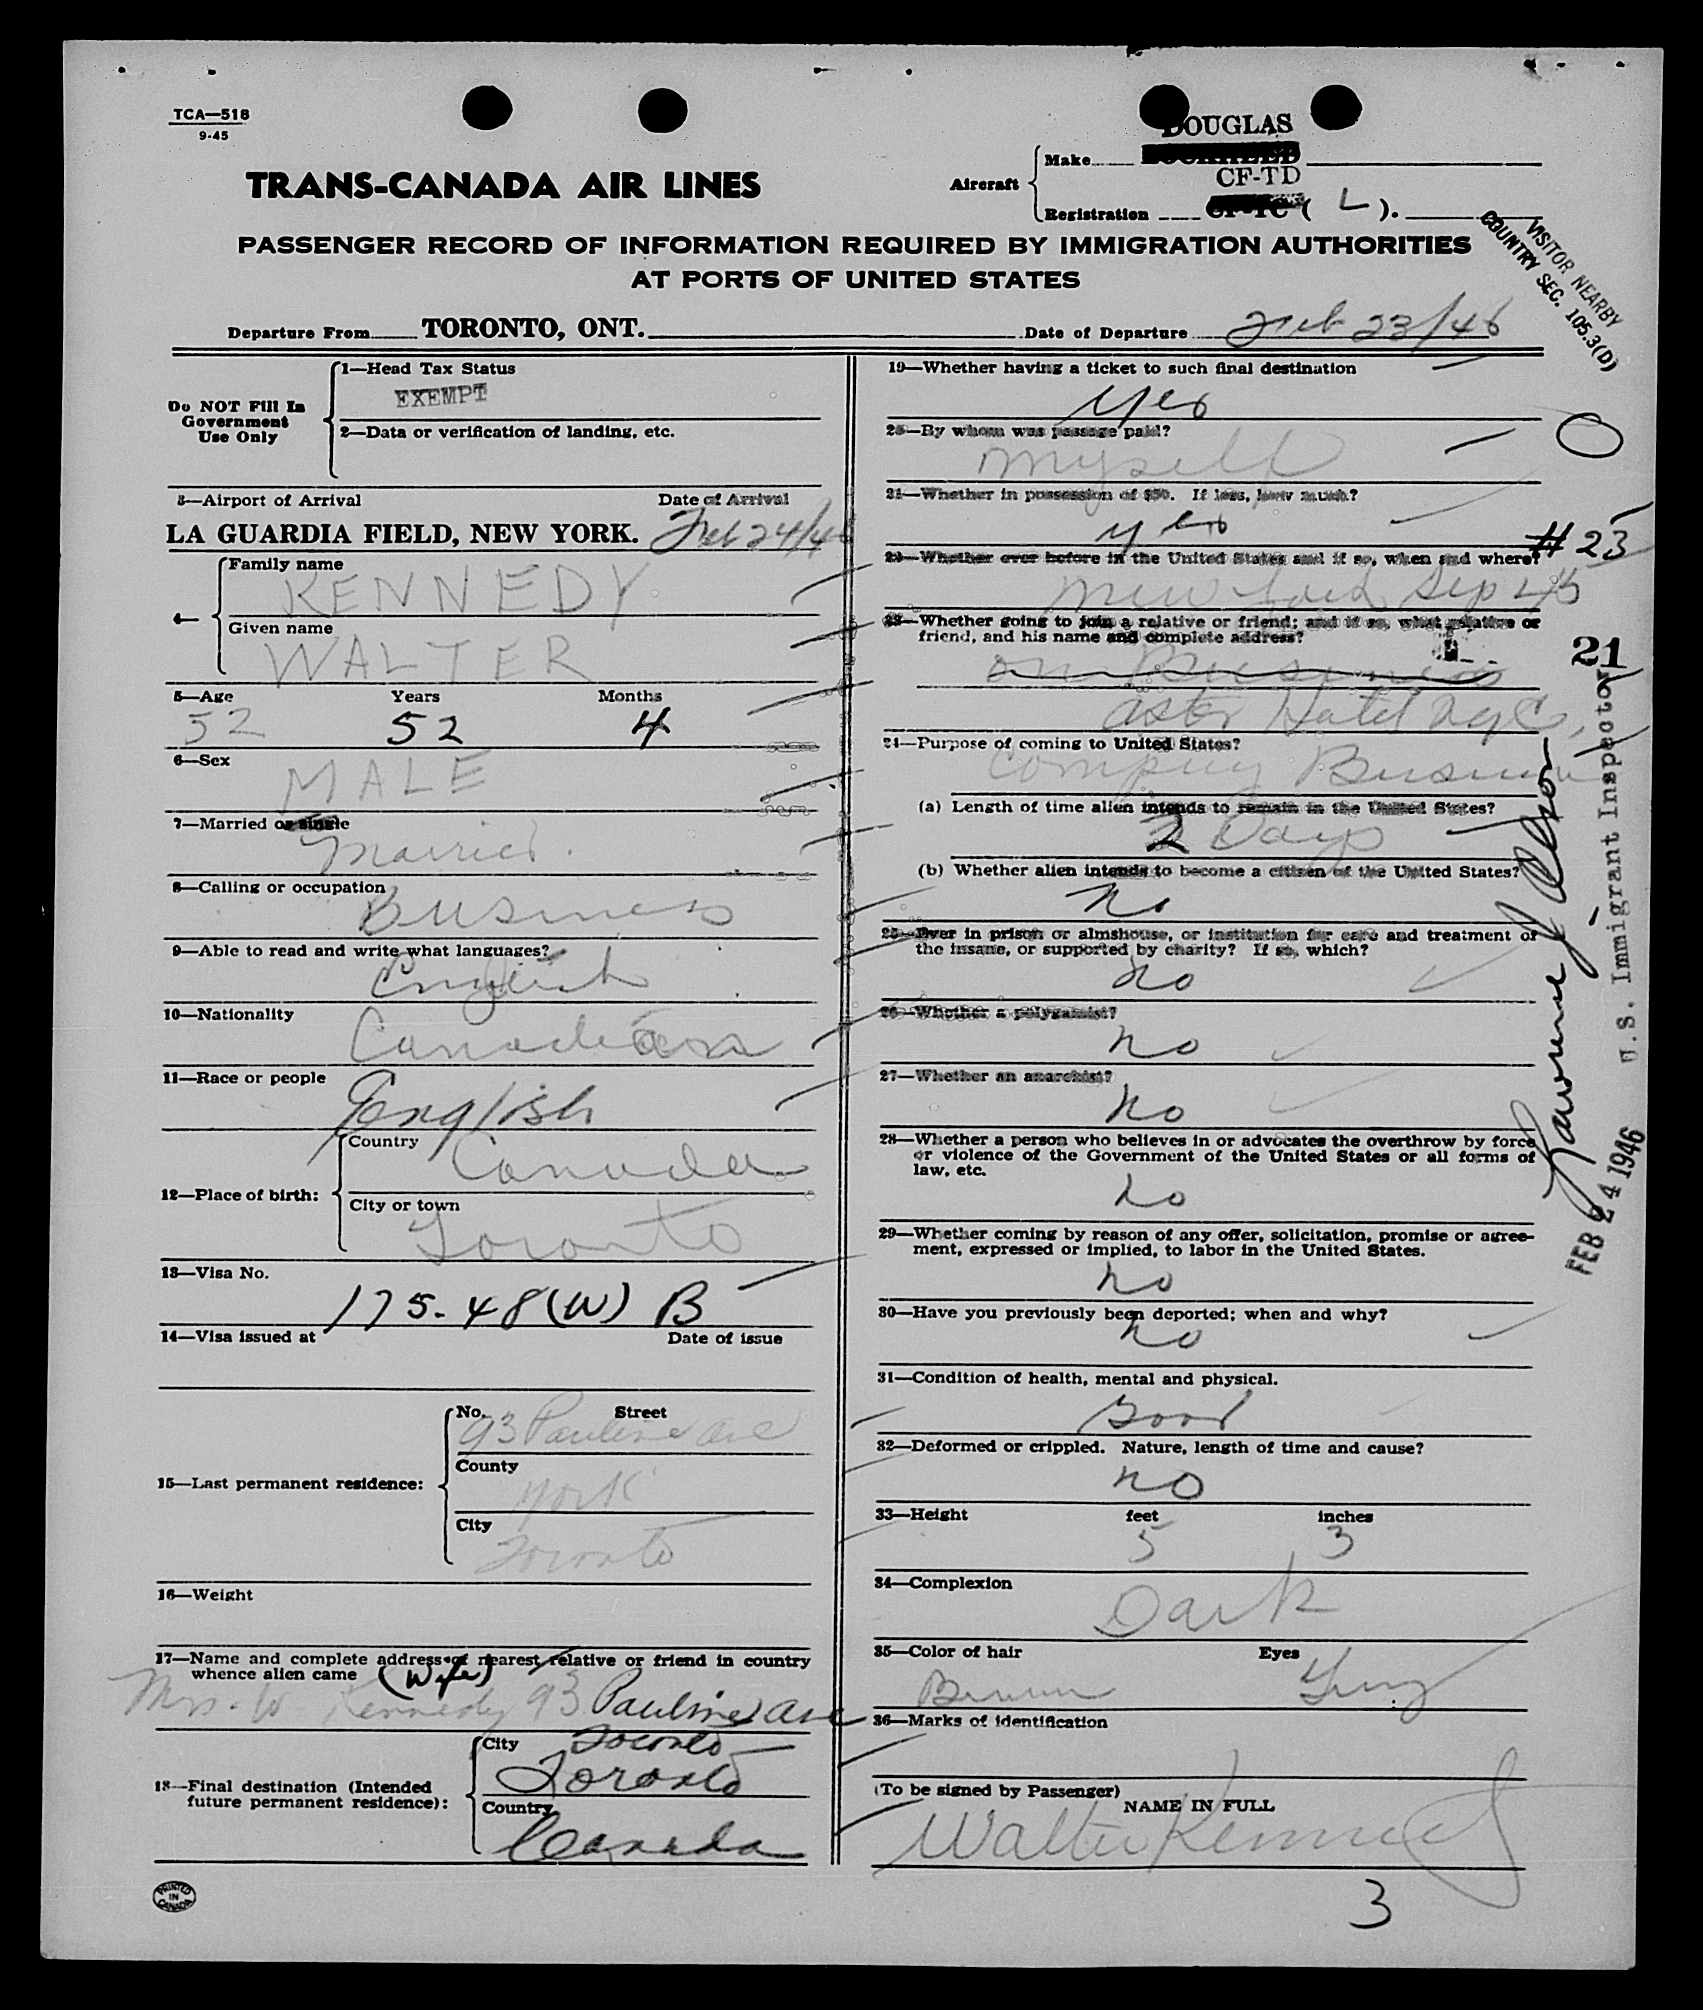 TCA—518
9-45
TRANS-CANADA AIR LINES
DOUGLAS
Aircraft
Make
LOCKHEED
CF-TD
Registration CF-TC ( L ).
PASSENGER RECORD OF INFORMATION REQUIRED BY IMMIGRATION AUTHORITIES
AT PORTS OF UNITED STATES
VISITOR NEARBY
COUNTRY SEC. 105.3(D)
Departure From TORONTO, ONT. Date of Departure Feb 23/46
Do NOT Fill In
Government
Use Only
1—Head Tax Status
EXEMPT
2—Data or verification of landing, etc.
3—Airport of Arrival Date of Arrival
LA GUARDIA FIELD, NEW YORK. Feb 24/46
4—
Family name
KENNEDY
Given name
WALTER
5—Age Years Months
52 52 4
6—Sex
MALE
7—Married or single
Married.
8—Calling or occupation
Business
9—Able to read and write what languages?
English
10—Nationality
Canadian
11—Race or people
English
12—Place of birth:
Country
Canada
City or town
Toronto
13—Visa No.
175-48(W) B
14—Visa issued at Date of issue
15—Last permanent residence:
No. Street
93 Pauline Ave
County
York
City
Toronto
16—Weight
17—Name and complete address of nearest relative or friend in country
whence alien came (Wife)
Mrs. W Kennedy 93 Pauline Ave
18—Final destination (Intended
future permanent residence):
City Toronto
Toronto
Country
Canada
PRINTED
IN
CANADA
19—Whether having a ticket to such final destination
yes
20—By whom was passage paid?
myself
21—Whether in possession of $50. If less, how much?
yes
22—Whether ever before in the United States and if so, when and where?
New York Sep 45
# 23
23—Whether going to join a relative or friend; and if so, what relative or
friend, and his name and complete address?
on Business
Astor Hotel NYC,
21
24—Purpose of coming to United States?
Company Business
(a) Length of time alien intends to remain in the United States?
2 Days
(b) Whether alien intends to become a citizen of the United States?
no
25—Ever in prison or almshouse, or institution for care and treatment of
the insane, or supported by charity? If so, which?
no
26—Whether a polygamist?
no
27—Whether an anarchist?
no
28—Whether a person who believes in or advocates the overthrow by force
or violence of the Government of the United States or all forms of
law, etc.
no
29—Whether coming by reason of any offer, solicitation, promise or agree-
ment, expressed or implied, to labor in the United States.
no
30—Have you previously been deported; when and why?
no
31—Condition of health, mental and physical.
Good
32—Deformed or crippled. Nature, length of time and cause?
no
33—Height feet inches
5 3
34—Complexion
Dark
35—Color of hair Eyes
Brown Grey
36—Marks of identification
(To be signed by Passenger)
NAME IN FULL
Walter Kennedy
3
Lawrence J Olson
U.S. Immigrant Inspector
FEB 24 1946